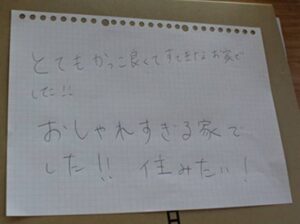 とてもかっこ良くてすてきなお家で
した!!
おしゃれすぎる家で
した!! 住みたい!